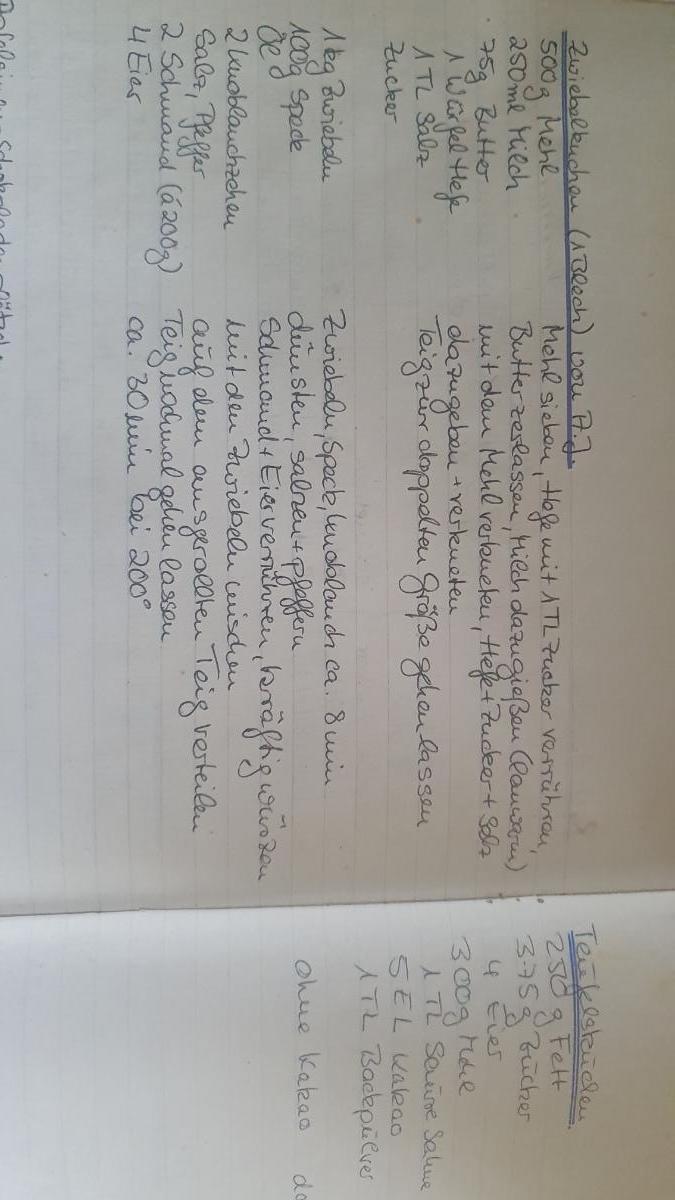 Zwiebelkuchen (1 Blech) von A.J.
500g Mehl
250ml Milch
75g Butter
1 Würfel Hefe
1 TL Salz
Zucker
Mehl sieben, Hefe mit 1 TL Zucker verrühren,
Butter zerlassen, Milch dazugießen (lauwarm)
mit dem Mehl verkneten, Hefe + Zucker + Salz
dazugeben + verkneten
Teig zur doppelten Größe gehen lassen
1 kg Zwiebeln
100g Speck
Öl
2 Knoblauchzehen
Salz, Pfeffer
2 Schmand (á 200g)
4 Eier
Zwiebeln, Speck, Knoblauch ca. 8 min
dünsten, salzen + pfeffern
Schmand + Eier verrühren, kräftig würzen
mit den Zwiebeln mischen
auf dem ausgerollten Teig verteilen
Teig nochmal gehen lassen
ca. 30 min bei 200°
250 g Fett
375 g Zucker
4 Eier
300g Mehl
1 TL Saure Sahne
5 EL Kakao
1 TL Backpulver
ohne Kakao